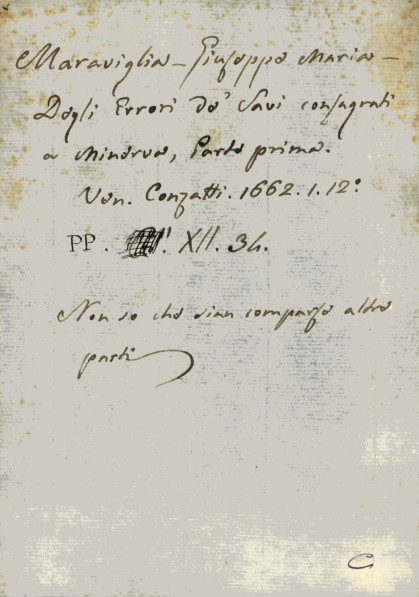 Maraviglia - Giuseppe Maria -
Degli Errori de' Savi consagrati
a Minerva, Parte prima.
Ven. Conzatti. 1662. 1. 12°
PP. XII. 34.
Non so che sian comparse altre
parti
C